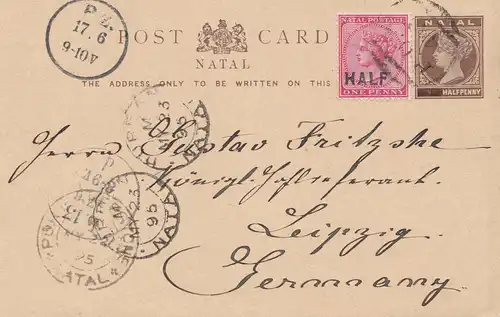 P. Z.
17. 6
9-10V
POST CARD
NATAL
THE ADDRESS ONLY TO BE WRITTEN ON THIS
NATAL POSTAGE
HALF
ONE PENNY
NATAL
HALFPENNY
MY 23
95
NATAL
Herrn Gustav Fritzsche
Königl. Hoflieferant.
MY 23
95
NATAL
95
NATAL
Leipzig.
Germany.